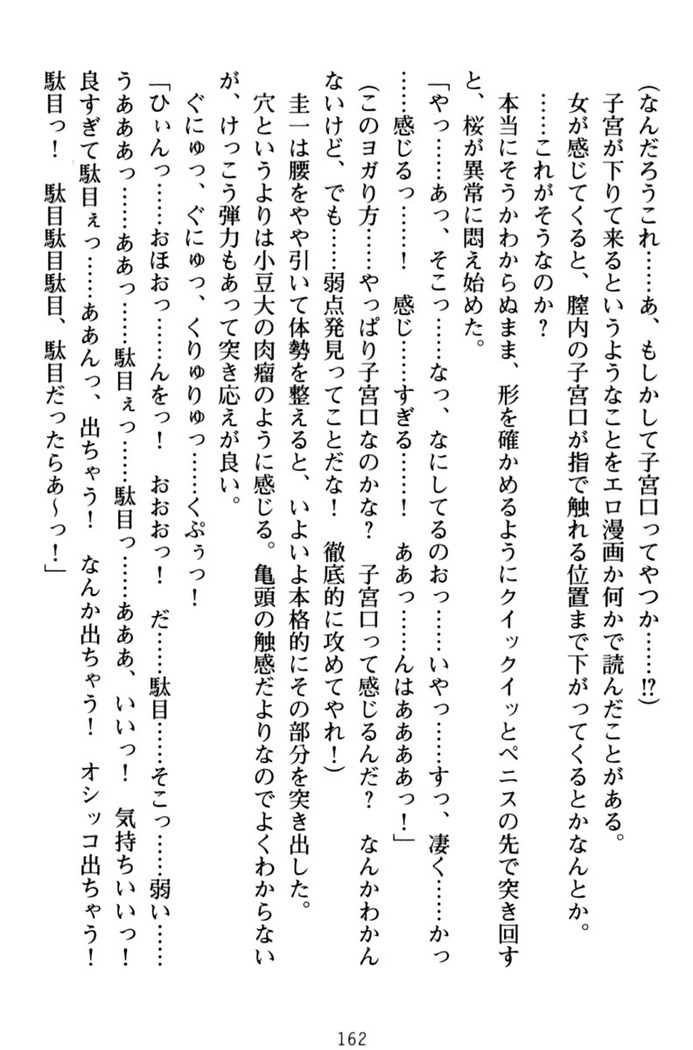 (なんだろうこれ……あ、もしかして子宮口ってやつか……!?)
子宮が下りて来るというようなことをエロ漫画か何かで読んだことがある。
女が感じてくると、膣内の子宮口が指で触れる位置まで下がってくるとかなんとか。
……これがそうなのか?
本当にそうかわからぬまま、形を確かめるようにクイックイッとペニスの先で突き回す
と、桜が異常に悶え始めた。
「やっ……あっ、そこっ……なっ、なにしてるのおっ……いやっ……すっ、凄く……かっ
……感じるっ……! 感じ……すぎる……! ああっ……んはああああっ!」
(このヨガり方……やっぱり子宮口なのかな? 子宮口って感じるんだ? なんかわかん
ないけど、でも……弱点発見ってことだな! 徹底的に攻めてやれ!)
圭一は腰をやや引いて体勢を整えると、いよいよ本格的にその部分を突き出した。
穴というよりは小豆大の肉瘤のように感じる。亀頭の触感だよりなのでよくわからない
が、けっこう弾力もあって突き応えが良い。
ぐにゅっ、ぐにゅっ、くりゅりゅっ……くぷぅっ!
「ひぃんっ……おほおっ……んをっ! おおおっ! だ……駄目……そこっ……弱い……
うあああっ……ああっ……駄目ぇっ……駄目っ……あああ、いいっ! 気持ちいいっ!
良すぎて駄目ぇっ……ああんっ、出ちゃう! なんか出ちゃう! オシッコ出ちゃう!
駄目っ! 駄目駄目駄目、駄目だったらあ~っ!」
162